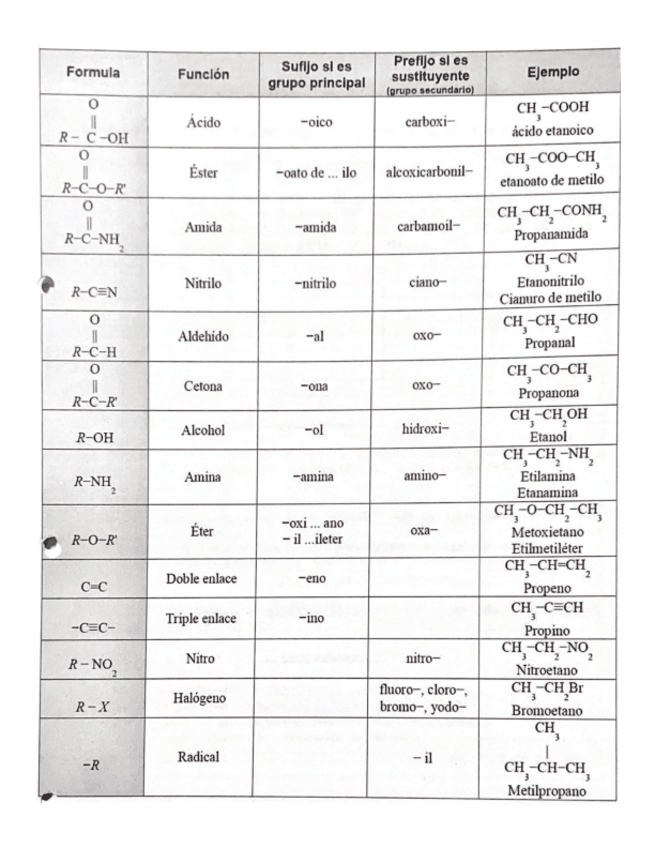 Formula	Función	Sufijo si es grupo principal	Prefijo si es sustituyente (grupo secundario)	Ejemplo
O
||
R – C –OH	Ácido	–oico	carboxi–	CH3–COOH
ácido etanoico
O
||
R–C–O–R'	Éster	–oato de ... ilo	alcoxicarbonil–	CH3–COO–CH3
etanoato de metilo
O
||
R–C–NH2	Amida	–amida	carbamoil–	CH3–CH2–CONH2
Propanamida
R–C≡N	Nitrilo	–nitrilo	ciano–	CH3–CN
Etanonitrilo
Cianuro de metilo
O
||
R–C–H	Aldehído	–al	oxo–	CH3–CH2–CHO
Propanal
O
||
R–C–R'	Cetona	–ona	oxo–	CH3–CO–CH3
Propanona
R–OH	Alcohol	–ol	hidroxi–	CH3–CH2OH
Etanol
R–NH2	Amina	–amina	amino–	CH3–CH2–NH2
Etilamina
Etanamina
R–O–R'	Éter	–oxi ... ano
– il ...ileter	oxa–	CH3–O–CH2–CH3
Metoxietano
Etilmetiléter
C=C	Doble enlace	–eno	CH3–CH=CH2
Propeno
–C≡C–	Triple enlace	–ino	CH3–C≡CH
Propino
R – NO2	Nitro	nitro–	CH3–CH2–NO2
Nitroetano
R – X	Halógeno	fluoro–, cloro–,
bromo–, yodo–	CH3–CH2Br
Bromoetano
–R	Radical	– il	CH3
|
CH3–CH–CH3
Metilpropano